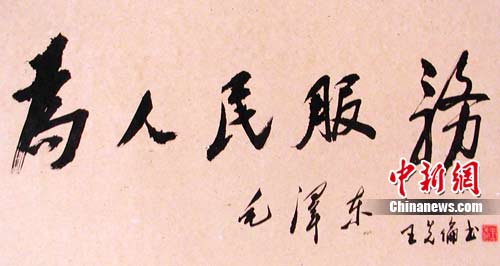 為人民服務
毛澤东
王芝倫书
中新網
Chinanews.com